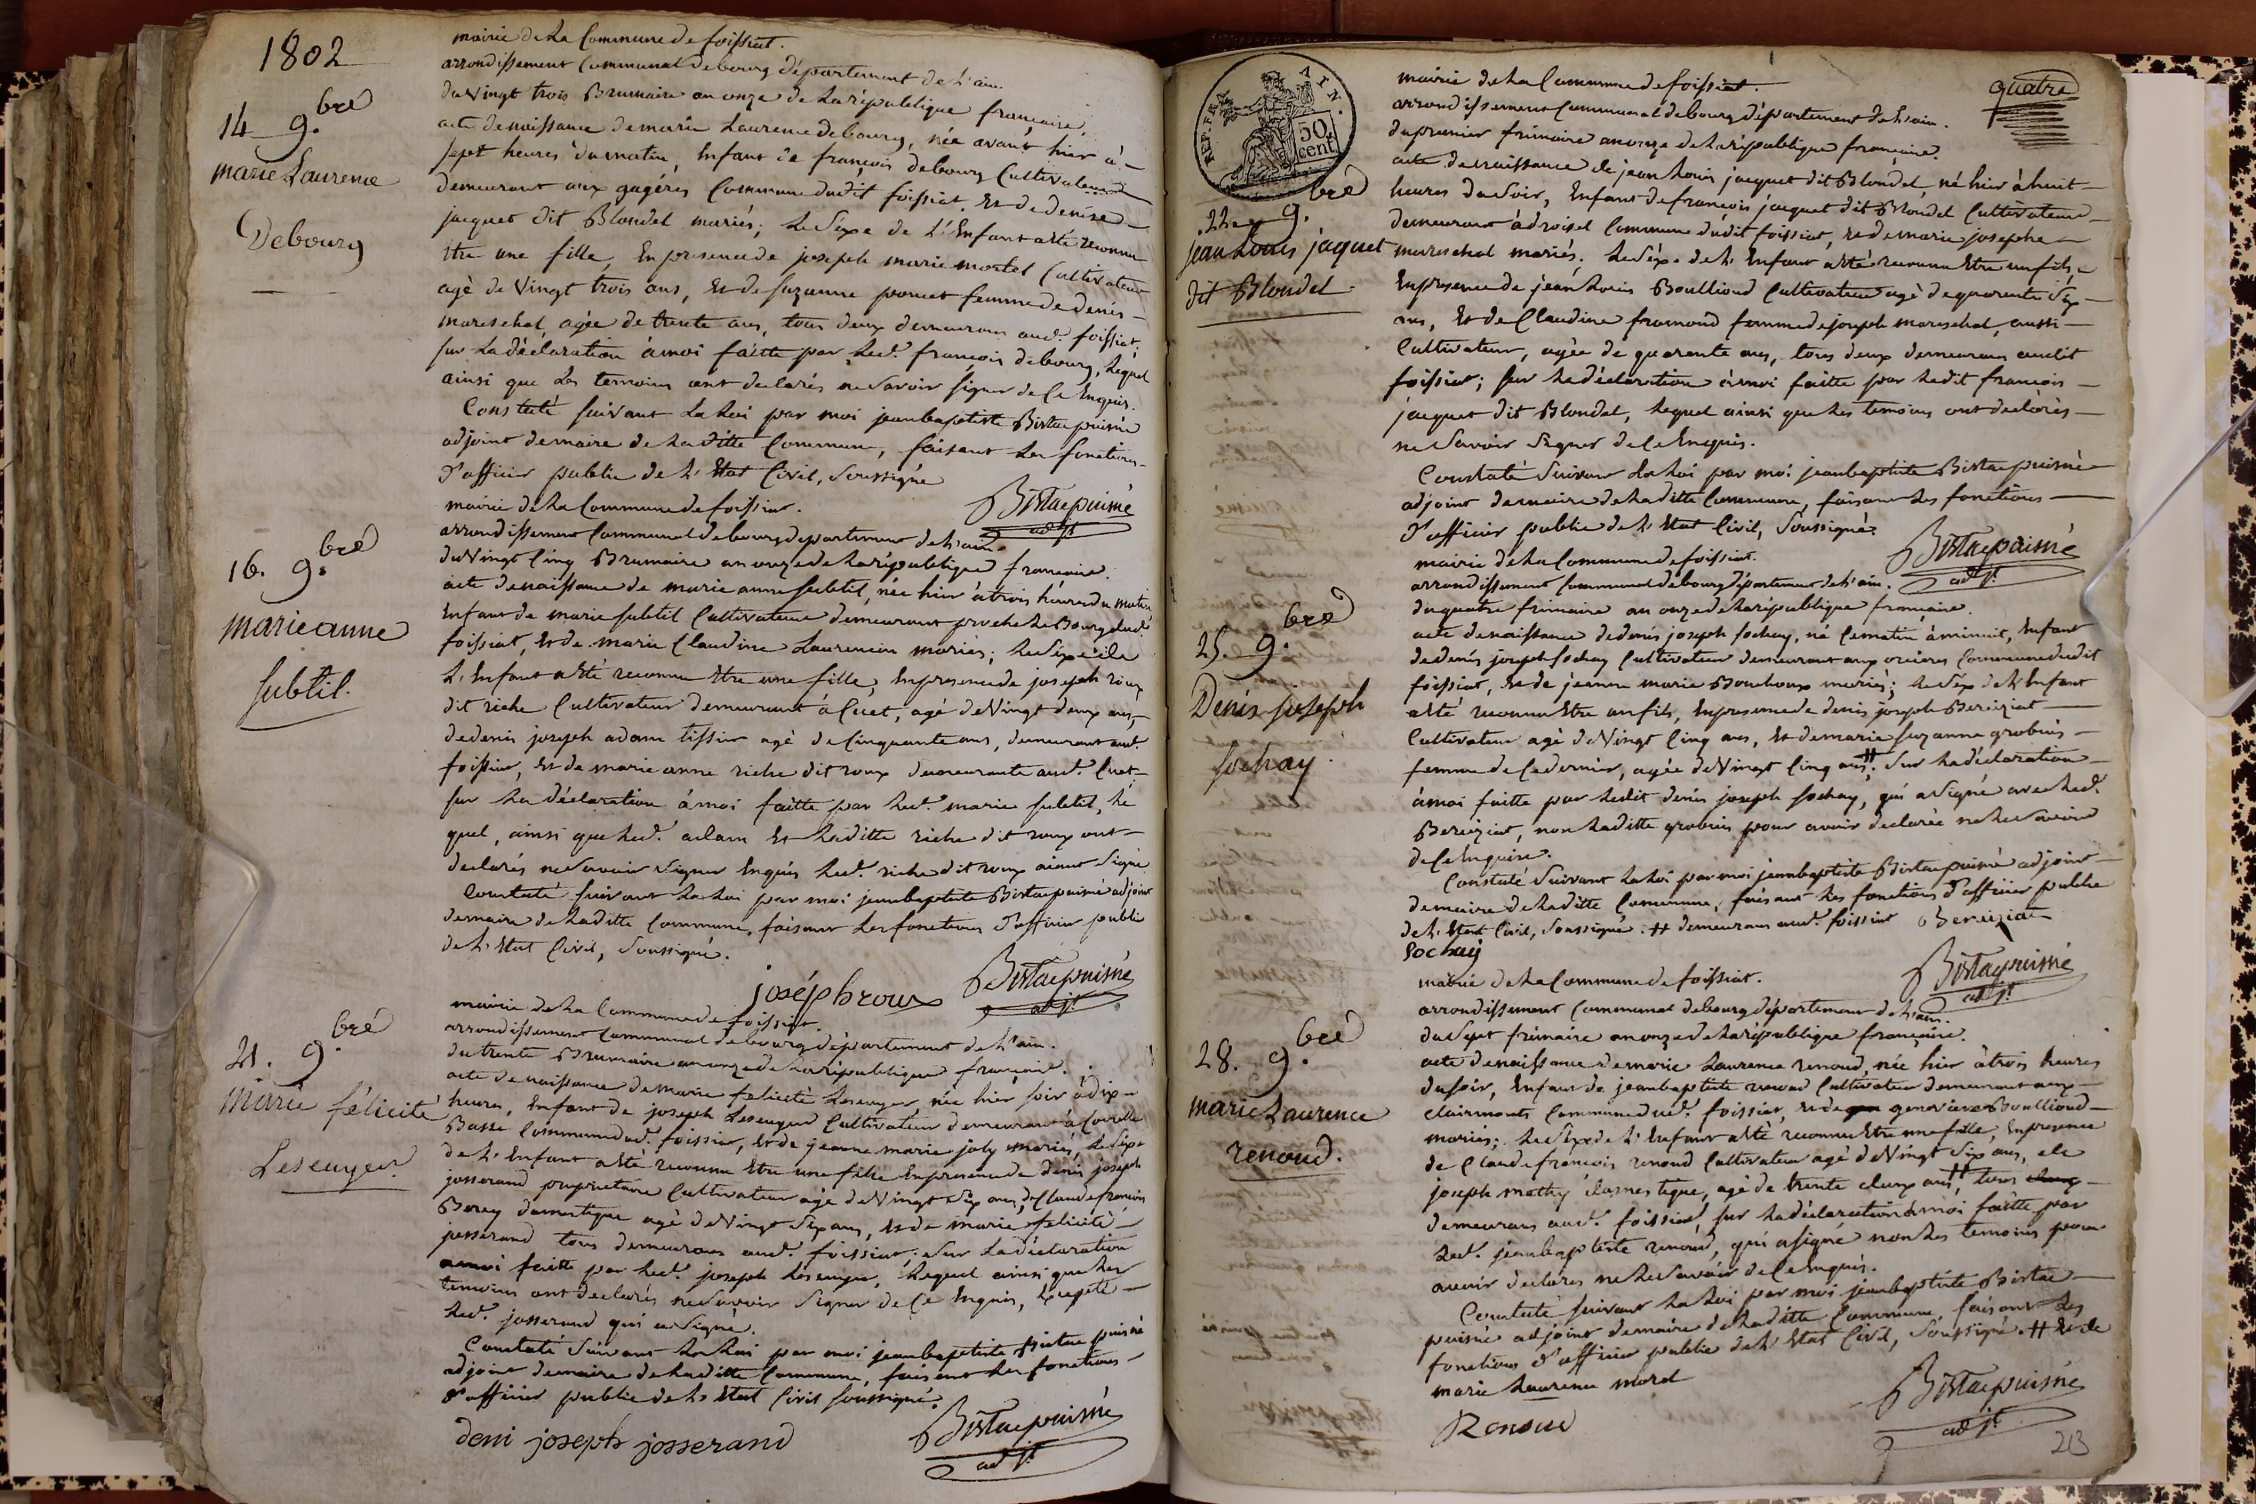 1802
14 9.bre
marie Laurence
Debourg
mairie de la Commune de foissiat.
arrondissement Communal de bourg département de l'ain.
du vingt trois Brumaire an onze de la république française.
acte de naissance de marie Laurence debourg, née avant hier à
sept heures du matin, Enfant de françois debourg Cultivateur
demeurant aux gagères Commune dudit foissiat, Et de denise
jacquet dit Blondel mariés; le sexe de l'Enfant a été reconnu
être une fille, En presence de joseph marie mortel Cultivateur
agé de vingt trois ans, Et de suzanne poncet femme de denis
mareschal, agée de trente ans, tous deux demeurans aud.t foissiat;
sur la déclaration à moi faitte par led.t françois debourg, lequel
ainsi que les temoins ont declarés ne savoir signer de Ce Enquis.
Constaté suivant la loi par moi jeanbaptiste Bistac puisné
adjoint de maire de la ditte Commune, faisant les fonctions
d'officier public de l'Etat Civil, soussigné
Bistac puisné
adjt
16. 9.bre
marie anne
subtil.
mairie de la Commune de foissiat.
arrondissement Communal de bourg département de l'ain.
du vingt Cinq Brumaire an onze de la république française.
acte de naissance de marie anne subtil, née hier à trois heures du matin
Enfant de marie subtil Cultivateur demeurant proche le Bourg dud.t
foissiat, Et de marie Claudine Laurencin mariés; le sexe de
l'Enfant a été reconnu être une fille, En presence de joseph roux
dit riche Cultivateur demeurant à Cuet, agé de vingt deux ans,
de denis joseph adam tissier agé de Cinquante ans, demeurant aud.t
foissiat, Et de marie anne riche dit roux demeurante aud.t Cuet
sur la déclaration à moi faitte par led.t marie subtil, le
quel, ainsi que led.t adam Et la ditte riche dit roux ont
declarés ne savoir signer Enquis led.t riche dit roux aiant signé
Constaté suivant la loi par moi jeanbaptiste Bistac puisné adjoint
de maire de la ditte Commune, faisant les fonctions d'officier public
de l'Etat Civil, soussigné.
joséph roux
Bistac puisné
adjt
21. 9.bre
Marie félicité
Lescuyer
mairie de la Commune de foissiat.
arrondissement Communal de bourg département de l'ain.
du trente Brumaire an onze de la république française.
acte de naissance de marie felicité Lescuyer née hier soir à dix
heures, Enfant de joseph Lescuyer Cultivateur demeurant à
Basse Commune dud.t foissiat, Et de jeanne marie joly mariés, le sexe
de l'Enfant a été reconnu être une fille En presence de denis joseph
josserand proprietaire Cultivateur agé de vingt six ans, de Claude françois
Borey domestique agé de vingt six ans, Et de marie felicité
josserand tous demeurans aud.t foissiat; sur la déclaration
a moi faitte par led.t joseph Lescuyer, lequel ainsi que les
temoins ont declarés ne savoir signer de Ce Enquis, Excepté
led.t josserand qui a signé.
Constaté suivant la loi par moi jeanbaptiste Bistac puisné
adjoint de maire de la ditte Commune, faisant les fonctions
d'officier public de l'Etat Civil soussigné.
deni joseph josserand
Bistac puisné
adjt
REP. FRA. AIN.
50 cent
quatre
22 9.bre
jean Louis jaquet
dit Blondel
mairie de la Commune de foissiat.
arrondissement Communal de bourg département de l'ain.
du premier frimaire an onze de la république française.
acte de naissance de jean Louis jacquet dit Blondel, né hier à huit
heures du soir, Enfant de françois jacquet dit Blondel Cultivateur
demeurant à droisel Commune dudit foissiat, et de marie josephe
mareschal mariés; le sexe de l'Enfant a été reconnu être un fils,
En presence de jean Louis Boulliond Cultivateur agé de quarante six
ans, Et de Claudine fromond femme de joseph mareschal, aussi
Cultivateur, agée de quarante ans, tous deux demeurans audit
foissiat; sur la déclaration à moi faitte par ledit françois
jacquet dit Blondel, lequel ainsi que les temoins ont declarés
ne savoir signer de Ce Enquis.
Constaté suivant la loi par moi jeanbaptiste Bistac puisné
adjoint de maire de la ditte Commune, faisant les fonctions
d'officier public de l'Etat Civil, soussigné
Bistac puisné
adjt
25. 9.bre
Denis joseph
sochay
mairie de la Commune de foissiat.
arrondissement Communal de bourg département de l'ain.
du quatre frimaire an onze de la république française.
acte de naissance de denis joseph sochay, né Ce matin à minuit, Enfant
de denis joseph sochay Cultivateur demeurant aux Commune dudit
foissiat, Et de jeanne marie Bouchoux mariés; le sexe de l'Enfant
a été reconnu être un fils, En presence de denis joseph Bereiziat
Cultivateur agé de vingt Cinq ans, Et de marie suzanne grobins
femme de Ce dernier, agée de vingt Cinq ans #; sur la déclaration
à moi faitte par ledit denis joseph sochay, qui a signé avec led.t
Bereiziat, non la ditte grobins pour avoir declarée ne le savoir
de Ce Enquise.
Constaté suivant la loi par moi jeanbaptiste Bistac puisné adjoint
de maire de la ditte Commune, faisant les fonctions d'officier public
de l'Etat Civil, soussigné. # demeurans aud.t foissiat Bereiziat
Sochay
Bistac puisné
adjt
28. 9.bre
marie Laurence
renoud.
mairie de la Commune de foissiat.
arrondissement Communal de bourg département de l'ain.
du sept frimaire an onze de la république française.
acte de naissance de marie Laurence renoud, née hier à trois heures
du soir, Enfant de jeanbaptiste renoud Cultivateur demeurant aux
clairmonts Commune dud.t foissiat, et de genevieve Boulliond
mariés; le sexe de l'Enfant a été reconnu être une fille, En presence
de Claude françois renoud Cultivateur agé de vingt six ans, de
joseph mathy domestique, agé de trente deux ans #, tous deux
demeurans aud.t foissiat, sur la déclaration à moi faitte par
led.t jeanbaptiste renoud, qui a signé non les temoins pour
avoir declarés ne le savoir de Ce Enquis.
Constaté suivant la loi par moi jeanbaptiste Bistac
puisné adjoint de maire de la ditte Commune faisant les
fonctions d'officier public de l'Etat Civil, soussigné. # Et de
marie Laurence morel
Renoud
Bistac puisné
adjt
213